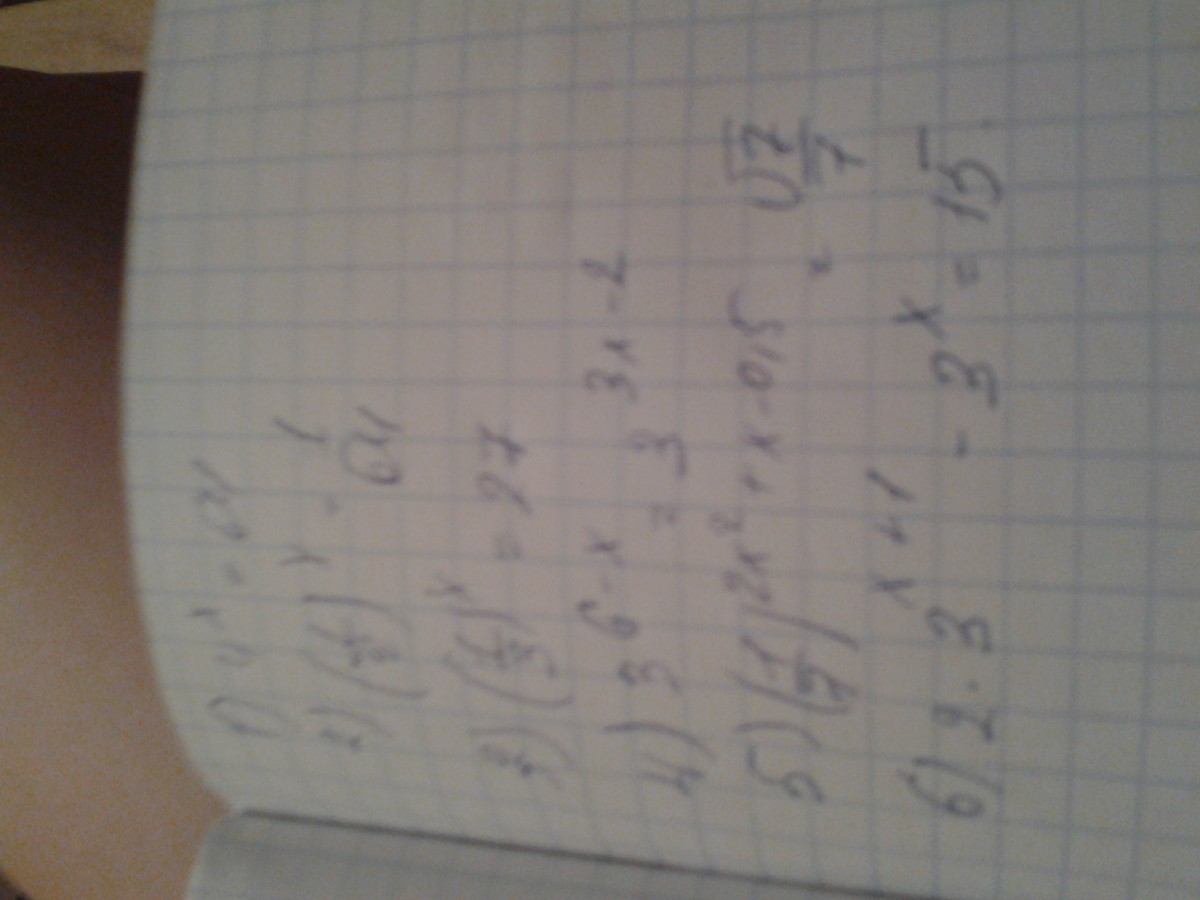 1) 4^x = 64
2) (1/8)^x = 1/64
3) (1/3)^x = 27
4) 3^(6-x) = 3^(3x-2)
5) (1/7)^(2x²+x-0,5) = √7/7
6) 2·3^(x+1) - 3^x = 15